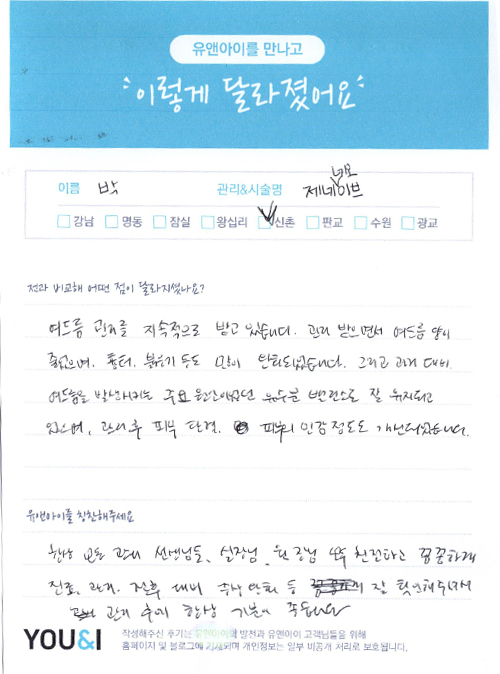 유앤아이를 만나고
이렇게 달라졌어요
이름 박 관리&시술명 제네이브 네오
강남 명동 잠실 왕십리 신촌 판교 수원 광교
전과 비교해 어떤 점이 달라지셨나요?
여드름 관리를 지속적으로 받고 있습니다. 관리 받으면서 여드름 양이
줄었으며, 흉터, 붉은기 등도 많이 완화되었습니다. 그리고 과거 대비
여드름을 발생시키는 주요 원인이었던 유수분 밸런스도 잘 유지되고
있으며, 관리 후 피부 탄력, 피부의 민감 정도도 개선되었습니다.
유앤아이를 칭찬해주세요
항상 모든 관리 선생님들, 실장님, 원장님 모두 친절하고 꼼꼼하게
진료, 관리, 전후 대비 증상 완화 등 잘 확인해주셔서
관리 후에 항상 기분이 좋습니다
YOU&I 작성해주신 후기는 유앤아이의 발전과 유앤아이 고객님들을 위해
홈페이지 및 블로그에 기재되며 개인정보는 일부 비공개 처리로 보호됩니다.